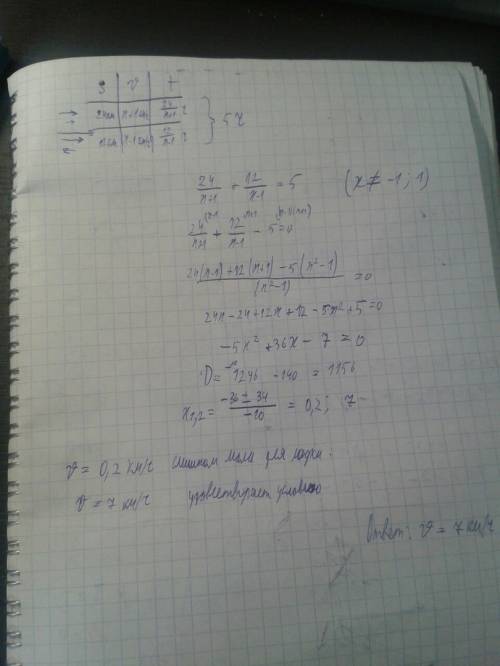 S | v | t
24км | x+1км/ч | 24/x+1 ч
12км | x-1км/ч | 12/x-1 ч } 5ч
24/x+1 + 12/x-1 = 5 (x ≠ -1; 1)
24/x+1 + 12/x-1 - 5 = 0
24(x-1)+12(x+1)-5(x²-1)/(x²-1) = 0
24x-24+12x+12-5x²+5=0
-5x²+36x-7=0
D= 1296 -140 = 1156
x1,2= -36±34/-10 = 0,2; 7
v= 0,2 км/ч слишком мала для лодки.
v= 7 км/ч удовлетворяет условию
Ответ: v = 7 км/ч